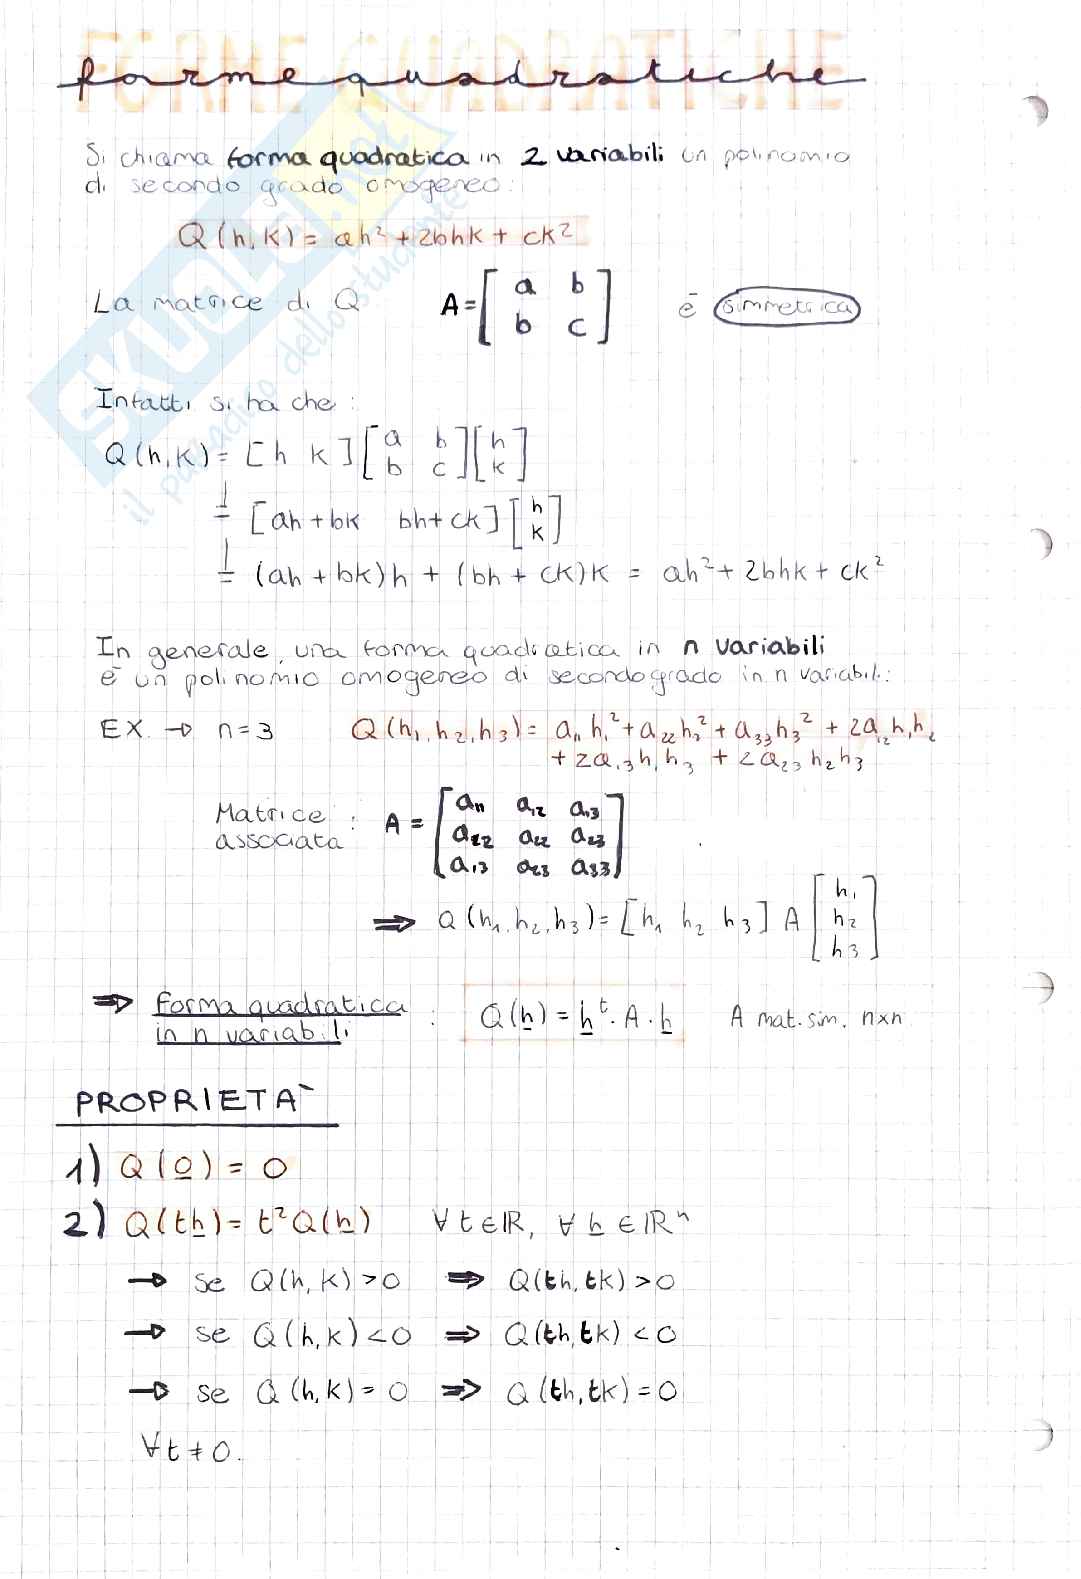 FORME QUADRATICHE
forme quadratiche
Si chiama forma quadratica in 2 variabili un polinomio
di secondo grado omogeneo:
Q(h,k) = ah² + 2bhk + ck²
La matrice di Q A = [a b; b c] è simmetrica
Infatti si ha che:
Q(h,k) = [h k] [a b; b c] [h; k]
= [ah+bk bh+ck] [h; k]
= (ah + bk)h + (bh + ck)k = ah² + 2bhk + ck²
In generale, una forma quadratica in n variabili
è un polinomio omogeneo di secondo grado in n variabili:
EX. → n=3 Q(h₁,h₂,h₃) = a₁₁h₁² + a₂₂h₂² + a₃₃h₃² + 2a₁₂h₁h₂
+ 2a₁₃h₁h₃ + 2a₂₃h₂h₃
Matrice associata: A = [a₁₁ a₁₂ a₁₃; a₂₂ a₂₂ a₂₃; a₁₃ a₂₃ a₃₃]
⇒ Q(h₁,h₂,h₃) = [h₁ h₂ h₃] A [h₁; h₂; h₃]
⇒ forma quadratica
in n variabili : Q(h) = hᵗ · A · h A mat. sim. n×n
PROPRIETÀ
1) Q(0) = 0
2) Q(th) = t²Q(h) ∀ t ∈ ℝ, ∀ h ∈ ℝⁿ
→ se Q(h,k) > 0 ⇒ Q(th,tk) > 0
→ se Q(h,k) < 0 ⇒ Q(th,tk) < 0
→ se Q(h,k) = 0 ⇒ Q(th,tk) = 0
∀ t ≠ 0.
SKUOLA.net
il paradiso dello studente